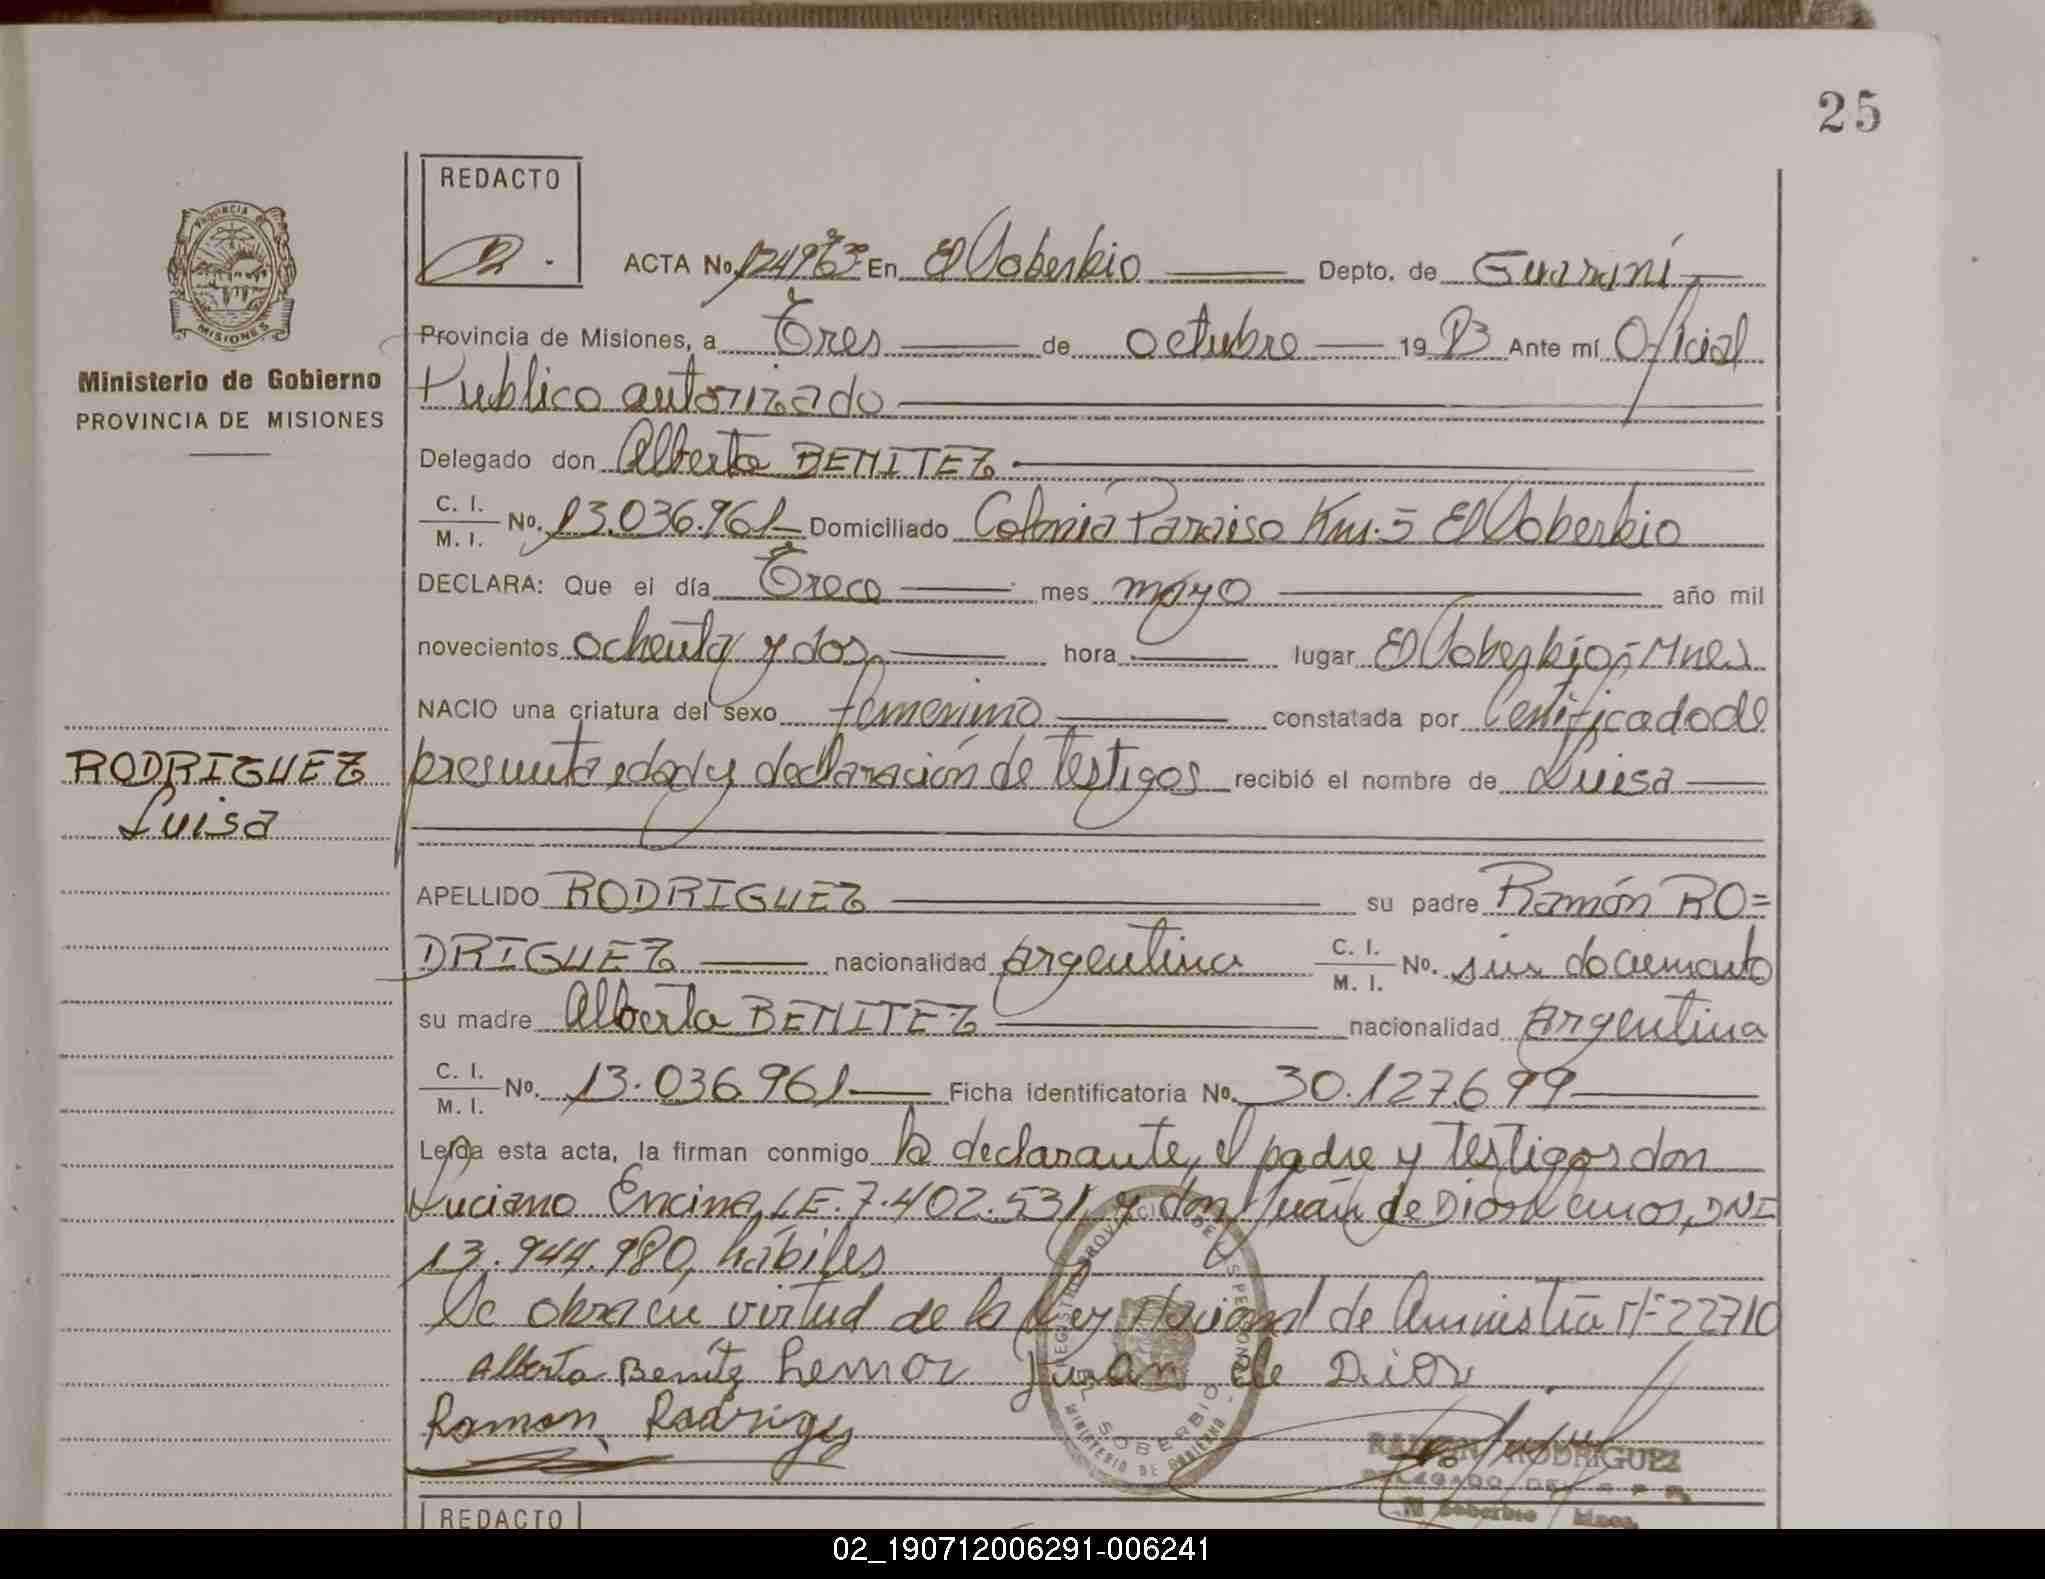 25
REDACTO
PROVINCIA DE
MISIONES
ACTA No. En El Soberbio Depto. de Guaraní
Provincia de Misiones, a Tres de octubre 19 83 Ante mí Oficial
Público autorizado
Ministerio de Gobierno
PROVINCIA DE MISIONES
Delegado don Alberta BENITEZ
C. I.
M. I. No. 13.036.961 Domiciliado Colonia Paraiso Km. 5 El Soberbio
DECLARA: Que el día Trece mes mayo año mil
novecientos ochenta y dos hora lugar El Soberbio, Mnes
NACIO una criatura del sexo femenino constatada por Certificado de
RODRIGUEZ
Luisa
presunta edad y declaración de testigos recibió el nombre de Luisa
APELLIDO RODRIGUEZ su padre Ramón RO=
DRIGUEZ nacionalidad argentina C. I.
M. I. No. sin documento
su madre Alberta BENITEZ nacionalidad argentina
C. I.
M. I. No. 13.036.961 Ficha identificatoria No. 30.127.699
Leída esta acta, la firman conmigo la declarante, el padre y testigos don
Luciano Encina, LE. 7.402.531, y don Juán de Dios Lemos, DNI
13.944.980, hábiles
Se obra en virtud de la Ley Nacional de Amnistía Nº 22710
Alberta Benítez Lemos Juan de Dios
Ramon Rodrigez
REGISTRO PROVINCIAL DE LAS PERSONAS
EL SOBERBIO
MINISTERIO DE GOBIERNO
RAMON RODRIGUEZ
DELEGADO DEL R. P. P.
El Soberbio Mnes.
REDACTO
02_190712006291-006241